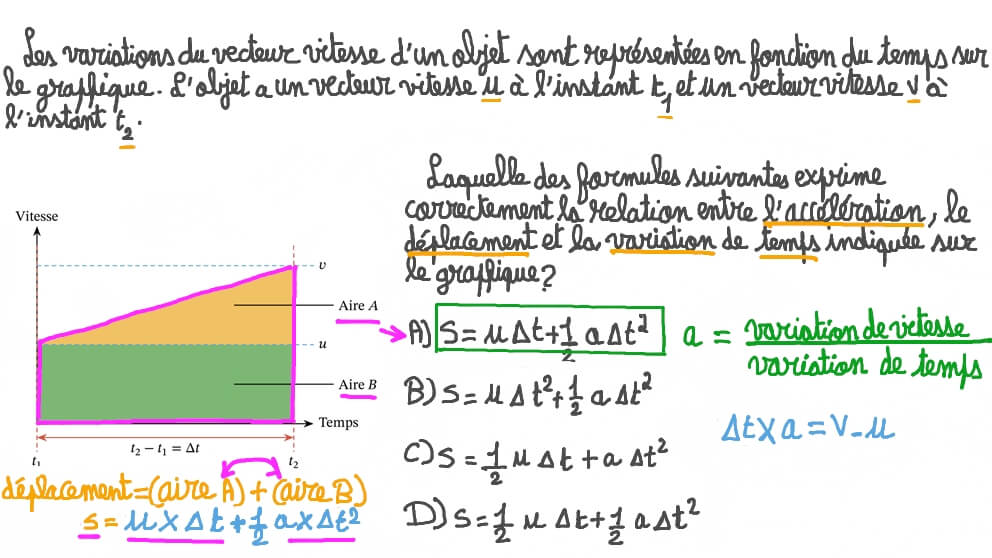 Les variations du vecteur vitesse d'un objet sont représentées en fonction du temps sur
le graphique. L'objet a un vecteur vitesse u à l'instant t₁ et un vecteur vitesse v à
l'instant t₂.
Laquelle des formules suivantes exprime
correctement la relation entre l'accélération, le
déplacement et la variation de temps indiquée sur
le graphique?
Vitesse
v
Aire A
u
Aire B
Temps
t₂ – t₁ = Δt
t₁
t₂
déplacement=(aire A)+(aire B)
s = u x Δt + 1/2 a x Δt²
A) S = u Δt + 1/2 a Δt²
B) S = u Δt² + 1/2 a Δt²
C) S = 1/2 u Δt + a Δt²
D) S = 1/2 u Δt + 1/2 a Δt²
a = variation de vitesse / variation de temps
Δt x a = V - u